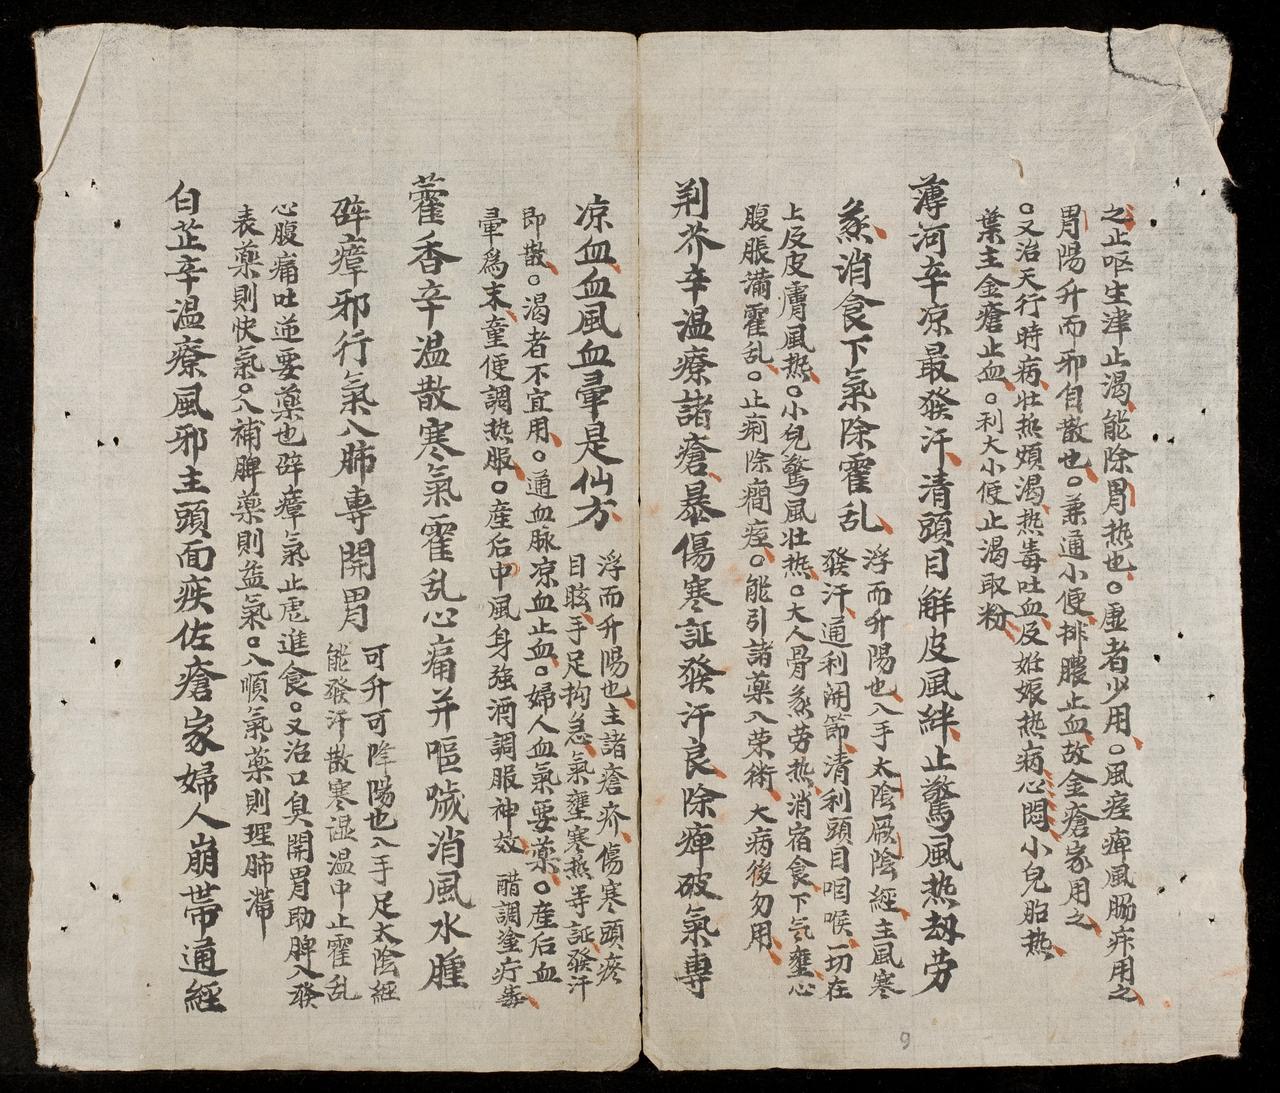 之止嘔生津止渴能除胃热也○虚者少用○風痓痺風腸疾用之
胃陽升而邪自散也○兼通小便排膿止血故金瘡家用之
○又治天行時病壮热煩渴热毒吐血及姙娠热病心悶小兒胎热
葉主金瘡止血○利大小便止渴取粉
薄河辛凉最發汗清頭目解皮風絆止驚風热刼劳
蒸消食下氣除霍乱
浮而升陽也入手太陰厥陰經主風寒
發汗通利関節清利頭目咽喉一切在
上及皮膚風热○小兒驚風壮热○大人骨蒸劳热消宿食下气壅心
腹脹滿霍乱○止痢除癎痓○能引諸薬入荣術大病後勿用
荆芥辛温療諸瘡暴傷寒証發汗良除痺破氣專
凉血血風血暈是仙方
浮而升陽也主諸瘡疥傷寒頭疼
目眩手足拘急氣壅寒热等証發汗
即散○渴者不宜用○通血脉凉血止血○婦人血氣要薬○産后血
暈為末童便調热服○産后中風身強酒調服神效 醋調塗疔毒
藿香辛温散寒氣霍乱心痛并嘔噦消風水腫
辟瘴邪行氣入肺專開胃
可升可降陽也入手足太陰經
能發汗散寒湿温中止霍乱
心腹痛吐逆要藥也辟瘴氣止虐進食○又治口臭開胃助脾入發
表藥則快氣○入補脾藥則益氣○入順氣藥則理肺滯
白芷辛温療風邪主頭面疾佐瘡家婦人崩帶通經